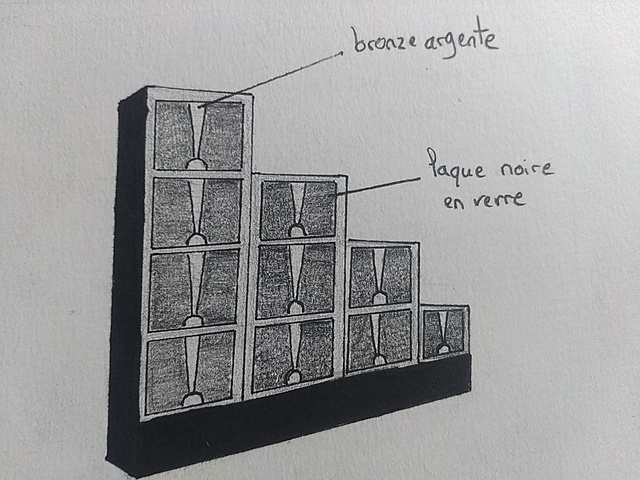 bronze argente
plaque noire
en verre